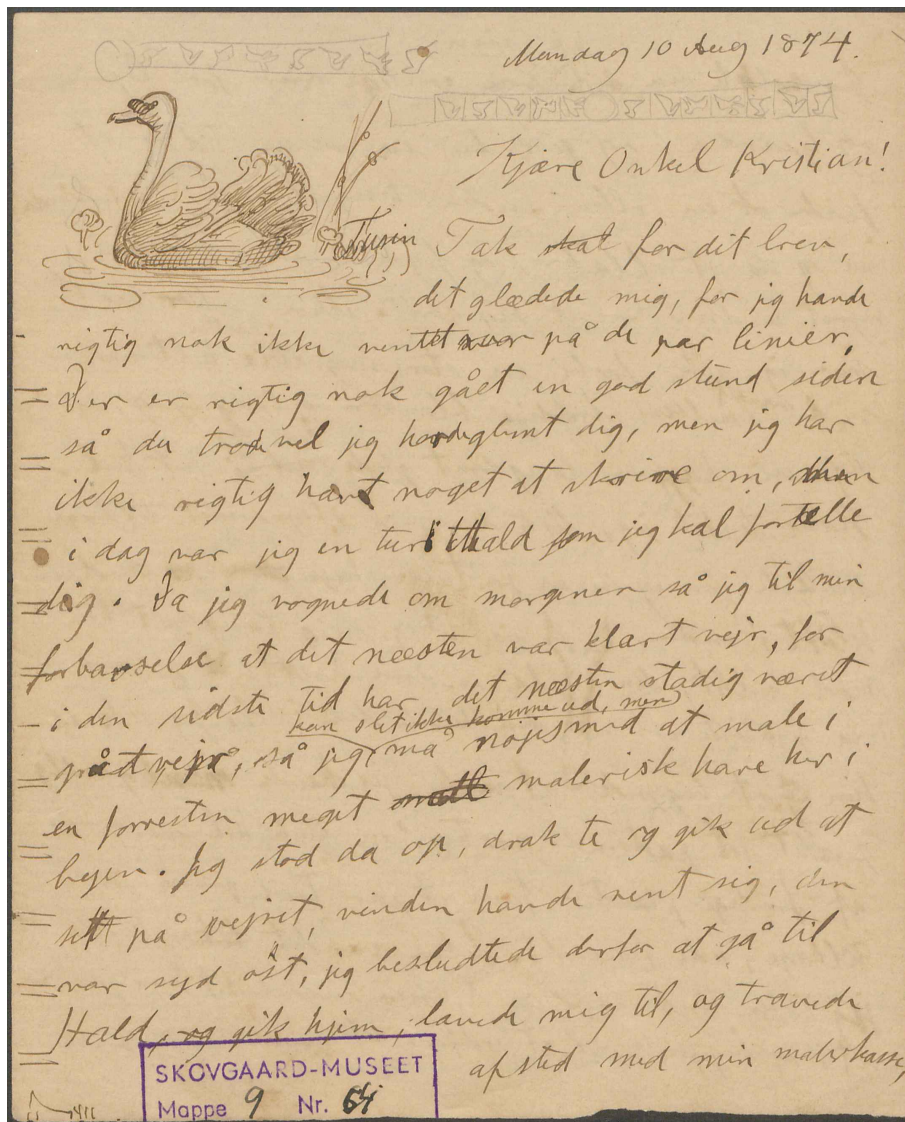 Mandag 10 Aug 1874.
Kjære Onkel Kristian!
Tak skal for dit brev,
det glædede mig, for jeg havde
rigtig nok ikke ventet svar på de par linier.
Der er rigtig nok gået en god stund siden
så du tror vel jeg har glemt dig, men jeg har
ikke rigtig havt noget at skrive om, men
i dag var jeg en tur i Hald som jeg skal fortelle
dig. Da jeg vognede om morgenen så jeg til min
forbavselse at det næsten var klart vejr, for
i den sidste tid har det næsten stadig været
kan slet ikke komme ud, men
gråt vejr, så jeg må nøjes med at male i
en forresten meget malerisk have her i
byen. Jeg stod da op, drak te og gik ud at
sett på vejret, vinden havde vent sig, den
var syd øst, jeg besludtede derfor at gå til
Hald, og gik hjem, lavede mig til, og travede
afsted med min malerkasse,
SKOVGAARD-MUSEET
Mappe 9 Nr. 64